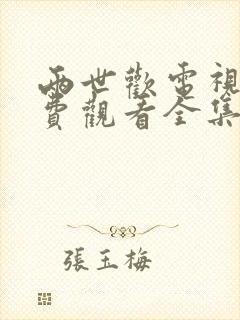 兩世歡電視
費觀看全集
張玉梅